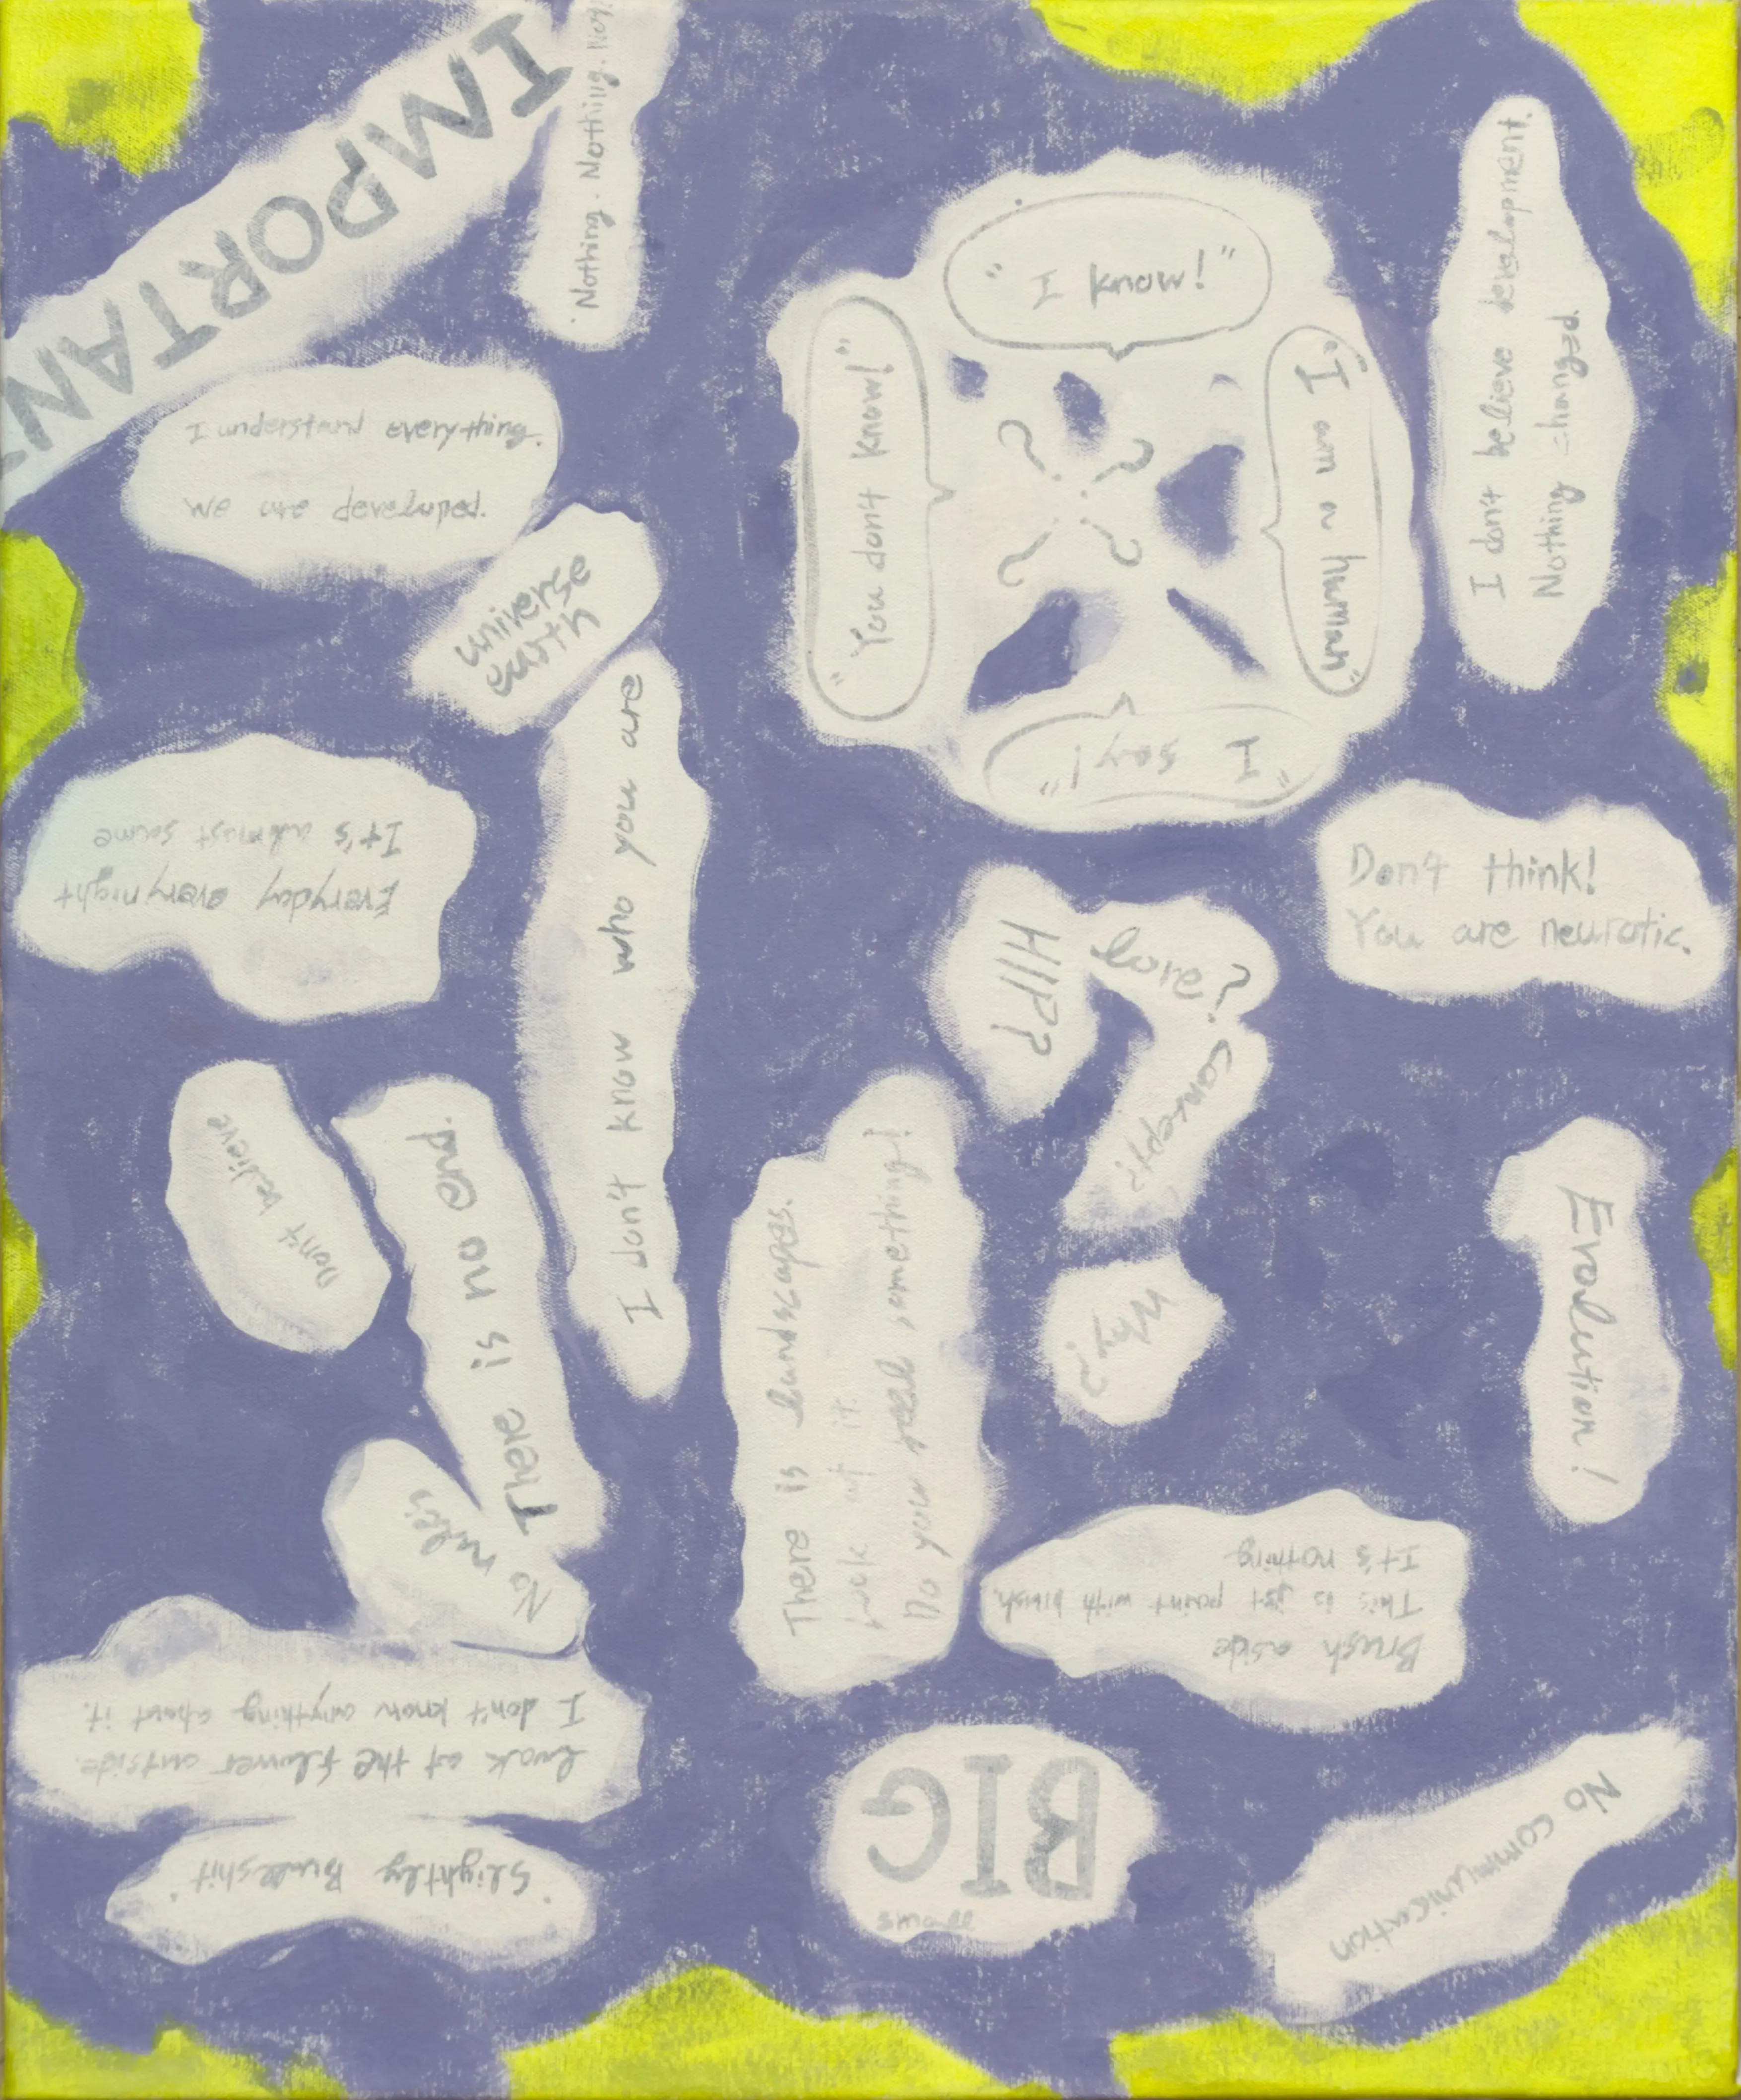 IMPORTAN
Nothing. Nothing.
I understand everything.
We are developed.
universe
earth
"I know!"
"You don't know!"
"I am a human"
"I say!"
? ? ? ?
I don't believe development.
Nothing changed.
Everyday every night
It's almost same
I don't know who you are
Don't think!
You are neurotic.
HIP?
love?
concept?
Why?
Don't believe
There is no end.
No rules
There is landscapes.
Look at it.
Do you feel something!
Evolution!
Brush aside
This is just paint with brush.
It's nothing
Look at the flower outside.
I don't know anything about it.
"Slightly Bullshit"
BIG
small
No communication